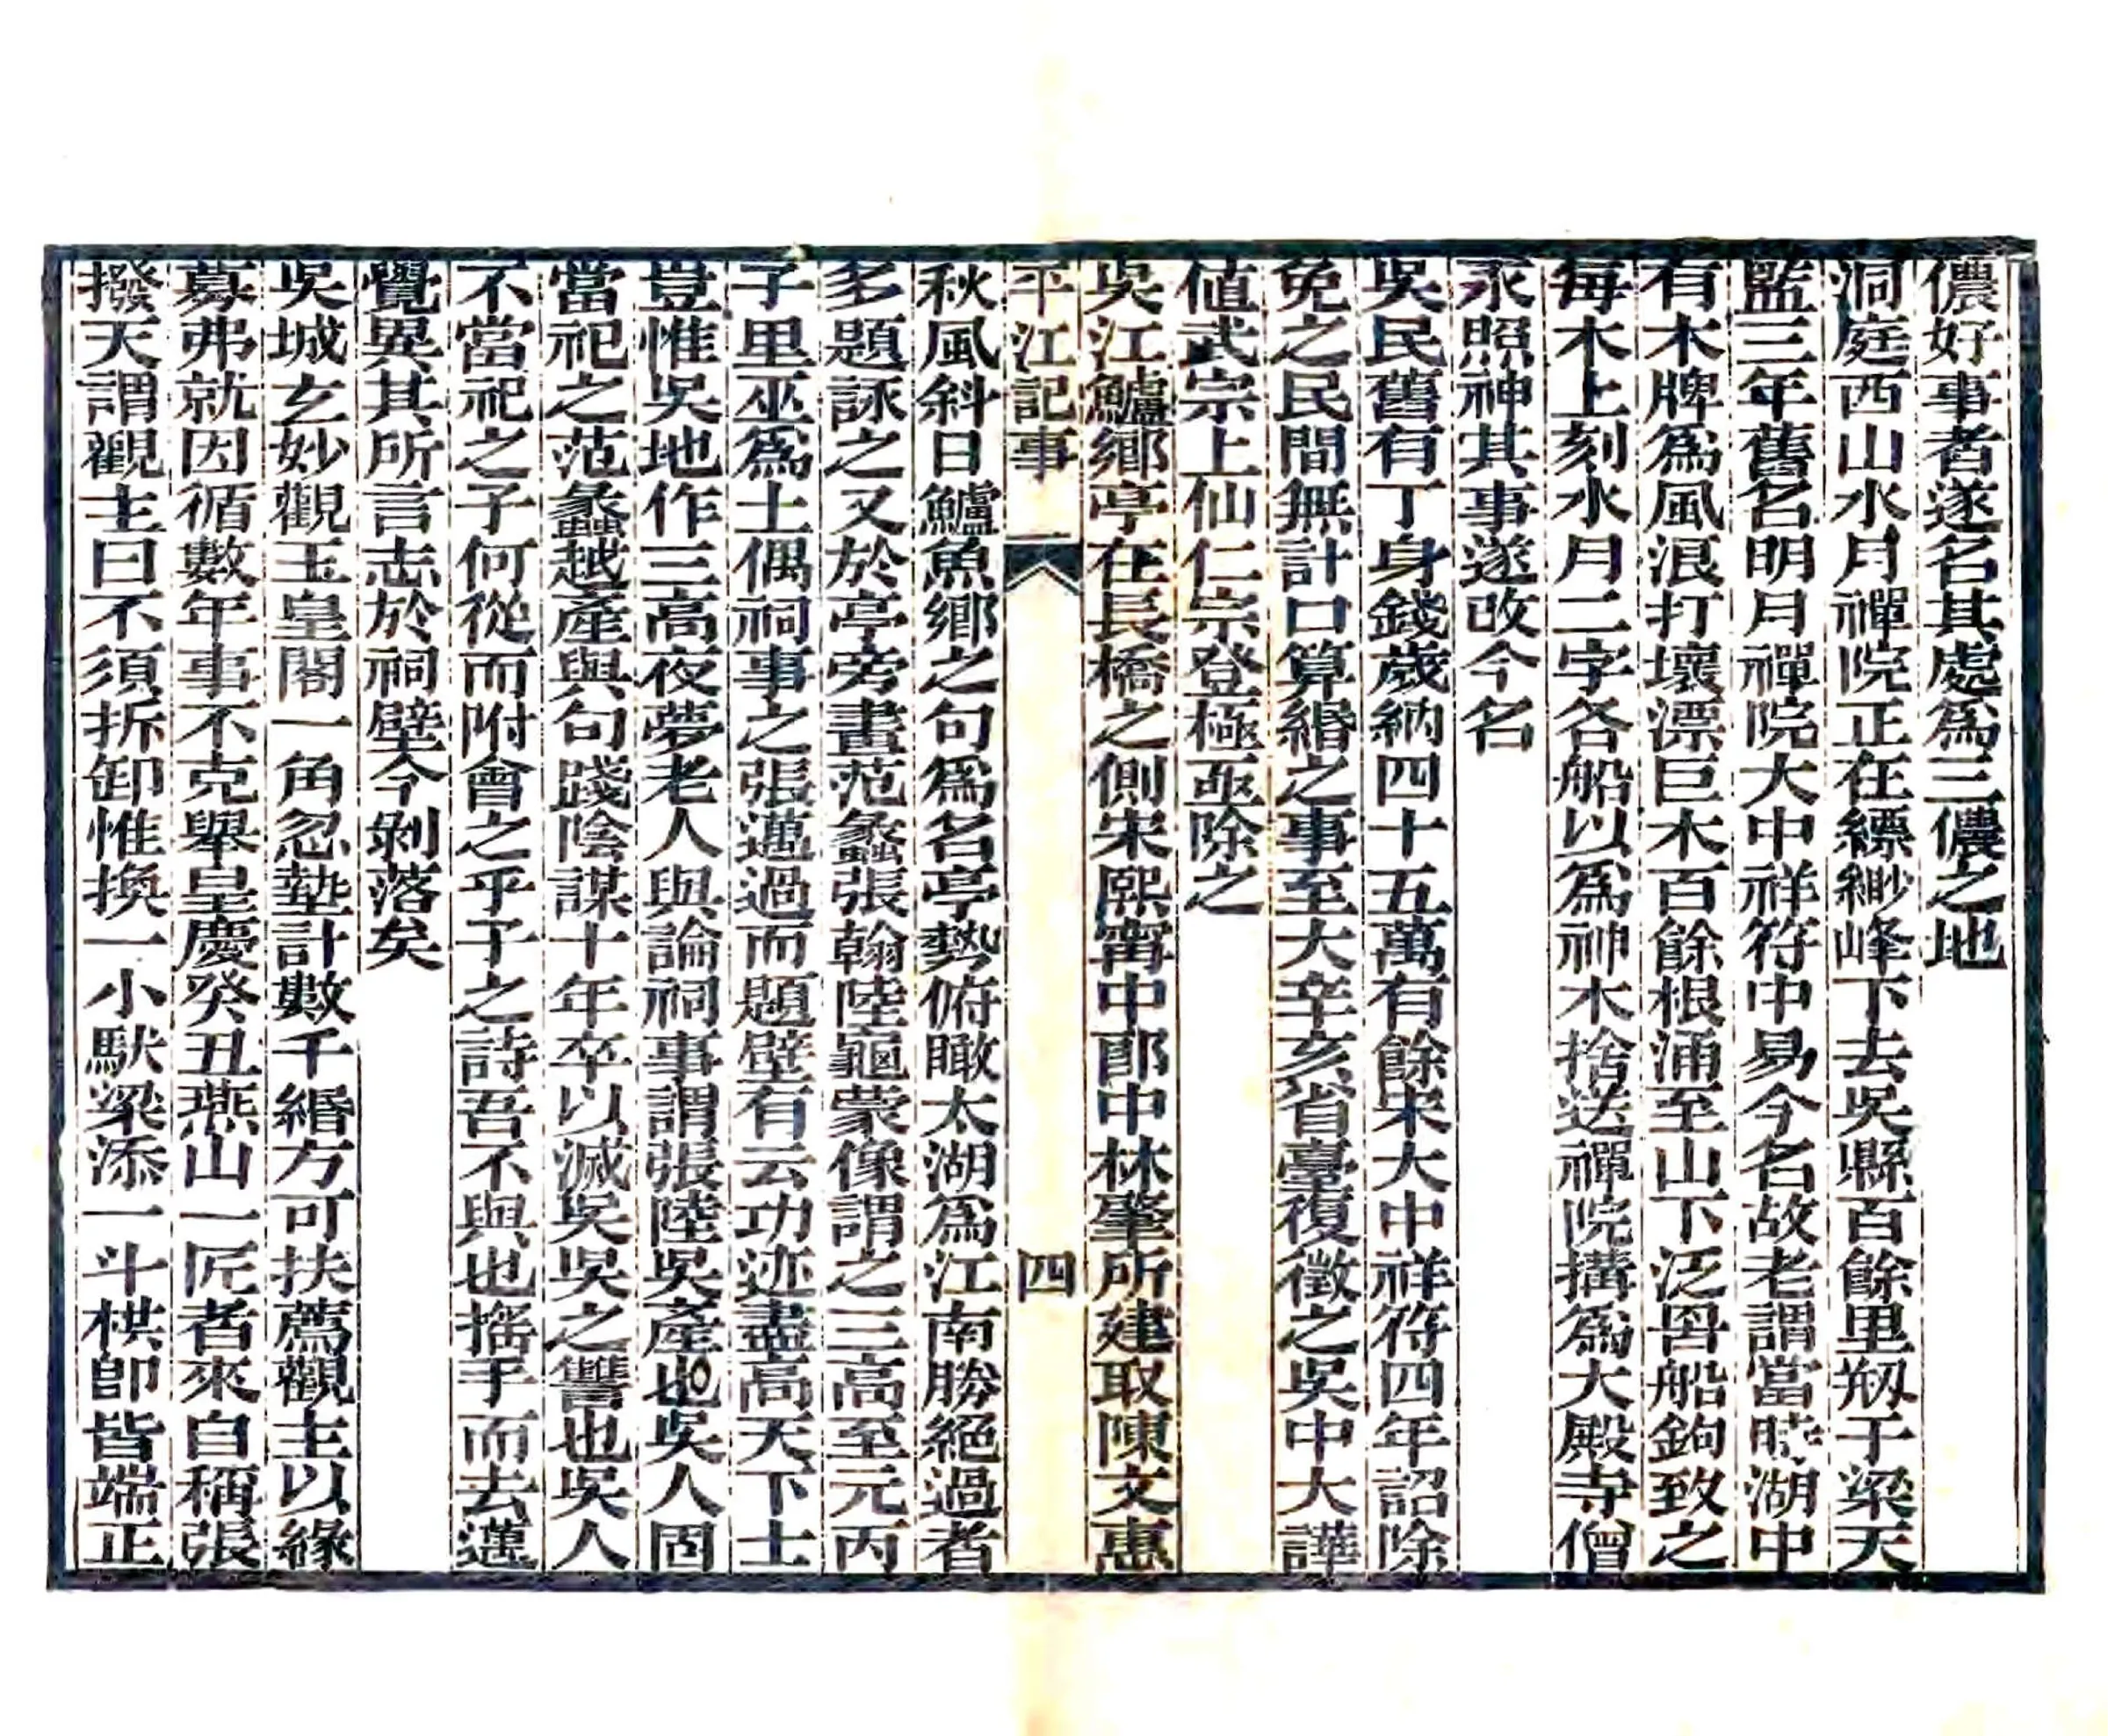 儂好事者遂名其處爲三儂之地
洞庭西山水月禪院正在縹緲峰下去吳縣百餘里剏于梁天
監三年舊名明月禪院大中祥符中易今名故老謂當時湖中
有木牌爲風浪打壞漂巨木百餘根涌至山下泛罟船鉤致之
每木上刻水月二字各船以爲神木捨送禪院搆爲大殿寺僧
永照神其事遂改今名
吳民舊有丁身錢歲納四十五萬有餘宋大中祥符四年詔除
免之民間無計口算緡之事至大辛亥省臺復徵之吳中大譁
値武宗上仙仁宗登極亟除之
吳江鱸鄉亭在長橋之側宋熙甯中郎中林肇所建取陳文惠
平江記事 四
秋風斜日鱸魚鄉之句爲名亭勢俯瞰太湖爲江南勝絕過者
多題詠之又於亭旁畫范蠡張翰陸龜蒙像謂之三高至元丙
子里巫爲土偶祠事之張邁過而題壁有云功迹盡高天下士
豈惟吳地作三高夜夢老人與論祠事謂張陸吳產也吳人固
當祀之范蠡越產與句踐陰謀十年卒以滅吳吳之讐也吳人
不當祀之子何從而附會之乎子之詩吾不與也搖手而去邁
覺異其所言志於祠壁今剝落矣
吳城玄妙觀玉皇閣一角忽墊計數千緡方可扶薦觀主以緣
募弗就因循數年事不克舉皇慶癸丑燕山一匠者來自稱張
撥天謂觀主曰不須拆卸惟換一小駃梁添一斗栱卽皆端正